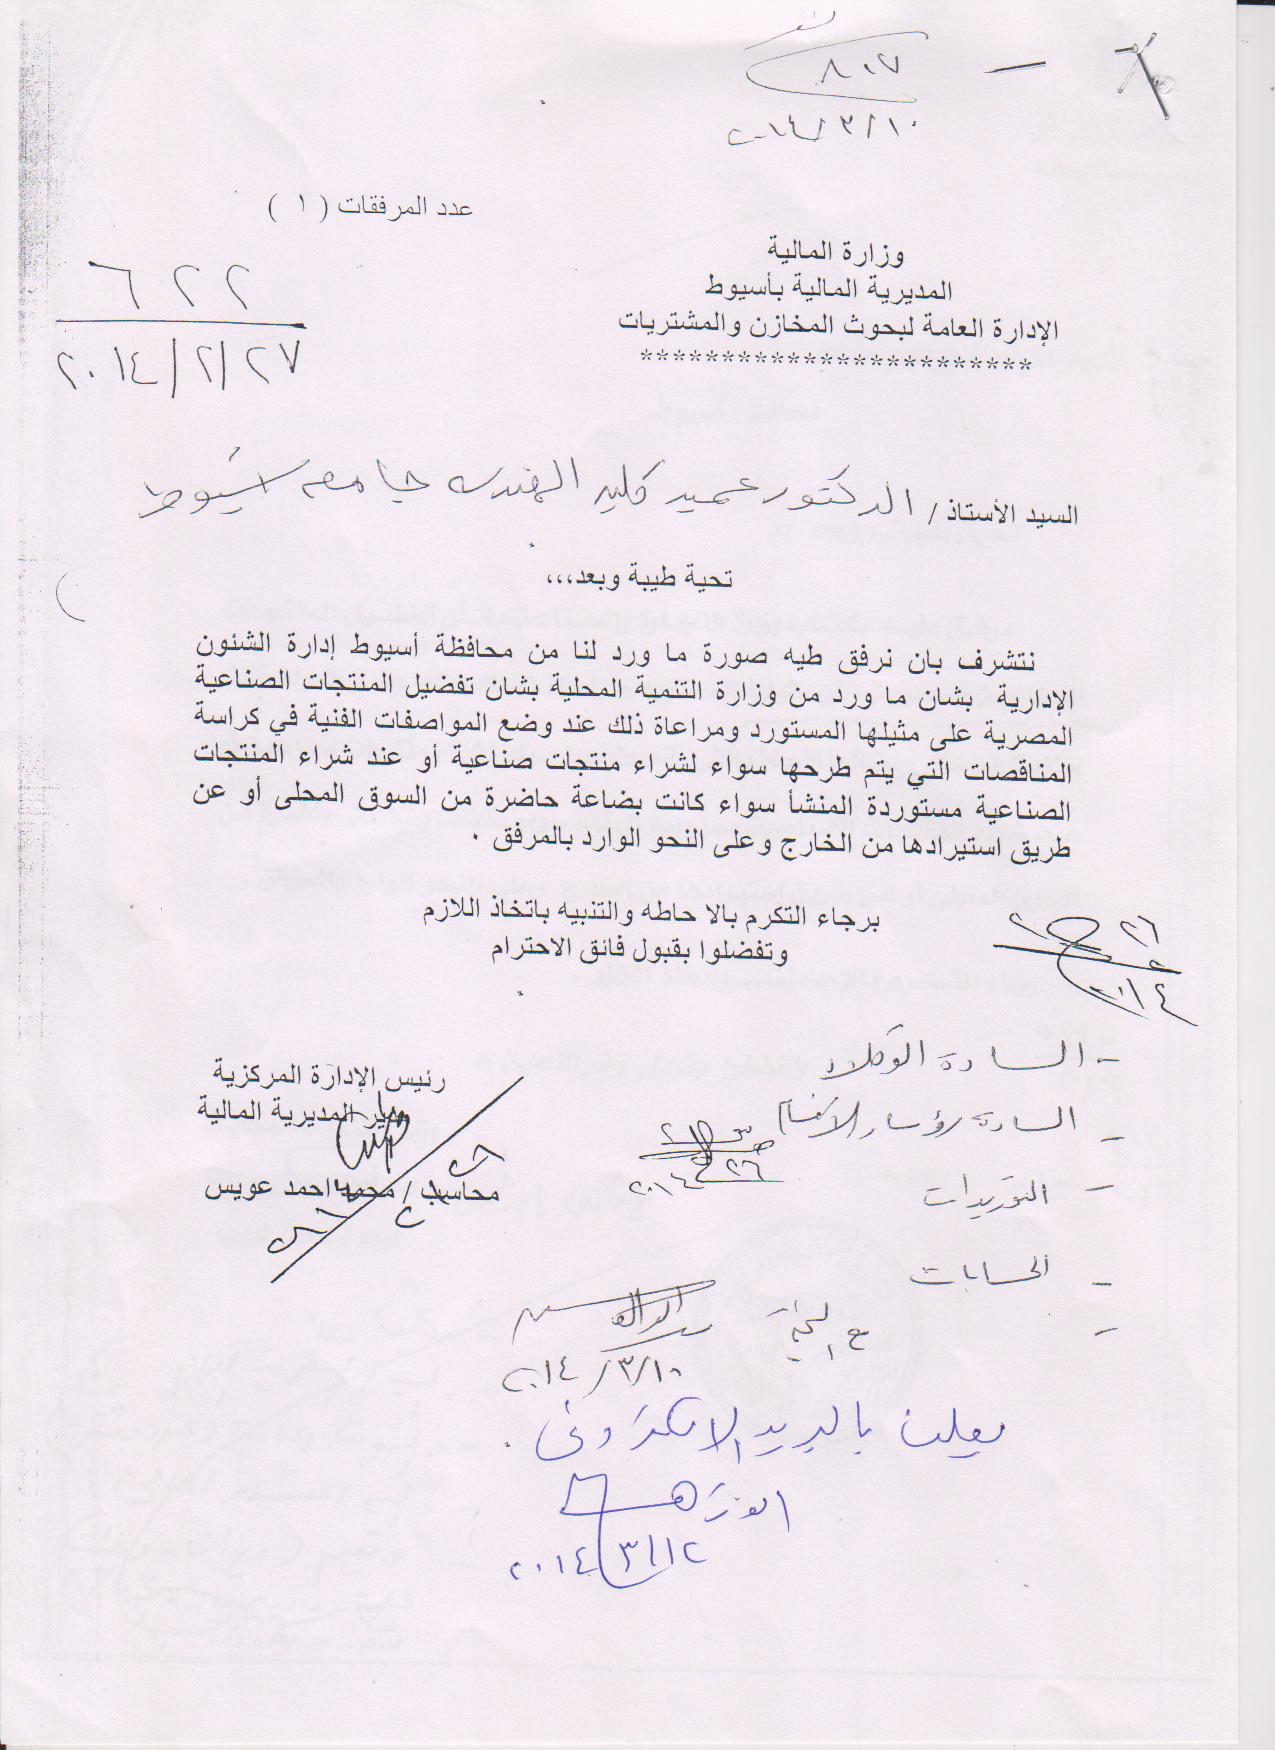 ٨٠٧
٢٠١٤/٣/١٠
عدد المرفقات ( ١ )
٦٢٢
٢٠١٤/٢/٢٧
وزارة المالية
المديرية المالية بأسيوط
الإدارة العامة لبحوث المخازن والمشتريات
************************
السيد الأستاذ / الدكتور عميد كلية الهندسة جامعة اسيوط
تحية طيبة وبعد،،،
نتشرف بان نرفق طيه صورة ما ورد لنا من محافظة أسيوط إدارة الشئون
الإدارية بشان ما ورد من وزارة التنمية المحلية بشان تفضيل المنتجات الصناعية
المصرية على مثيلها المستورد ومراعاة ذلك عند وضع المواصفات الفنية في كراسة
المناقصات التي يتم طرحها سواء لشراء منتجات صناعية أو عند شراء المنتجات
الصناعية مستوردة المنشأ سواء كانت بضاعة حاضرة من السوق المحلى أو عن
طريق استيرادها من الخارج وعلى النحو الوارد بالمرفق .
برجاء التكرم بالا حاطه والتنبيه باتخاذ اللازم
وتفضلوا بقبول فائق الاحترام
رئيس الإدارة المركزية
مدير المديرية المالية
محاسب / محمد احمد عويس
- السادة الوكلاء
- السادة رؤساء الاقسام
- التوريدات
- الحسابات
٢٠١٤/٣/١٠
يعلن بالبريد الالكترونى
٢٠١٤/٣/١٢